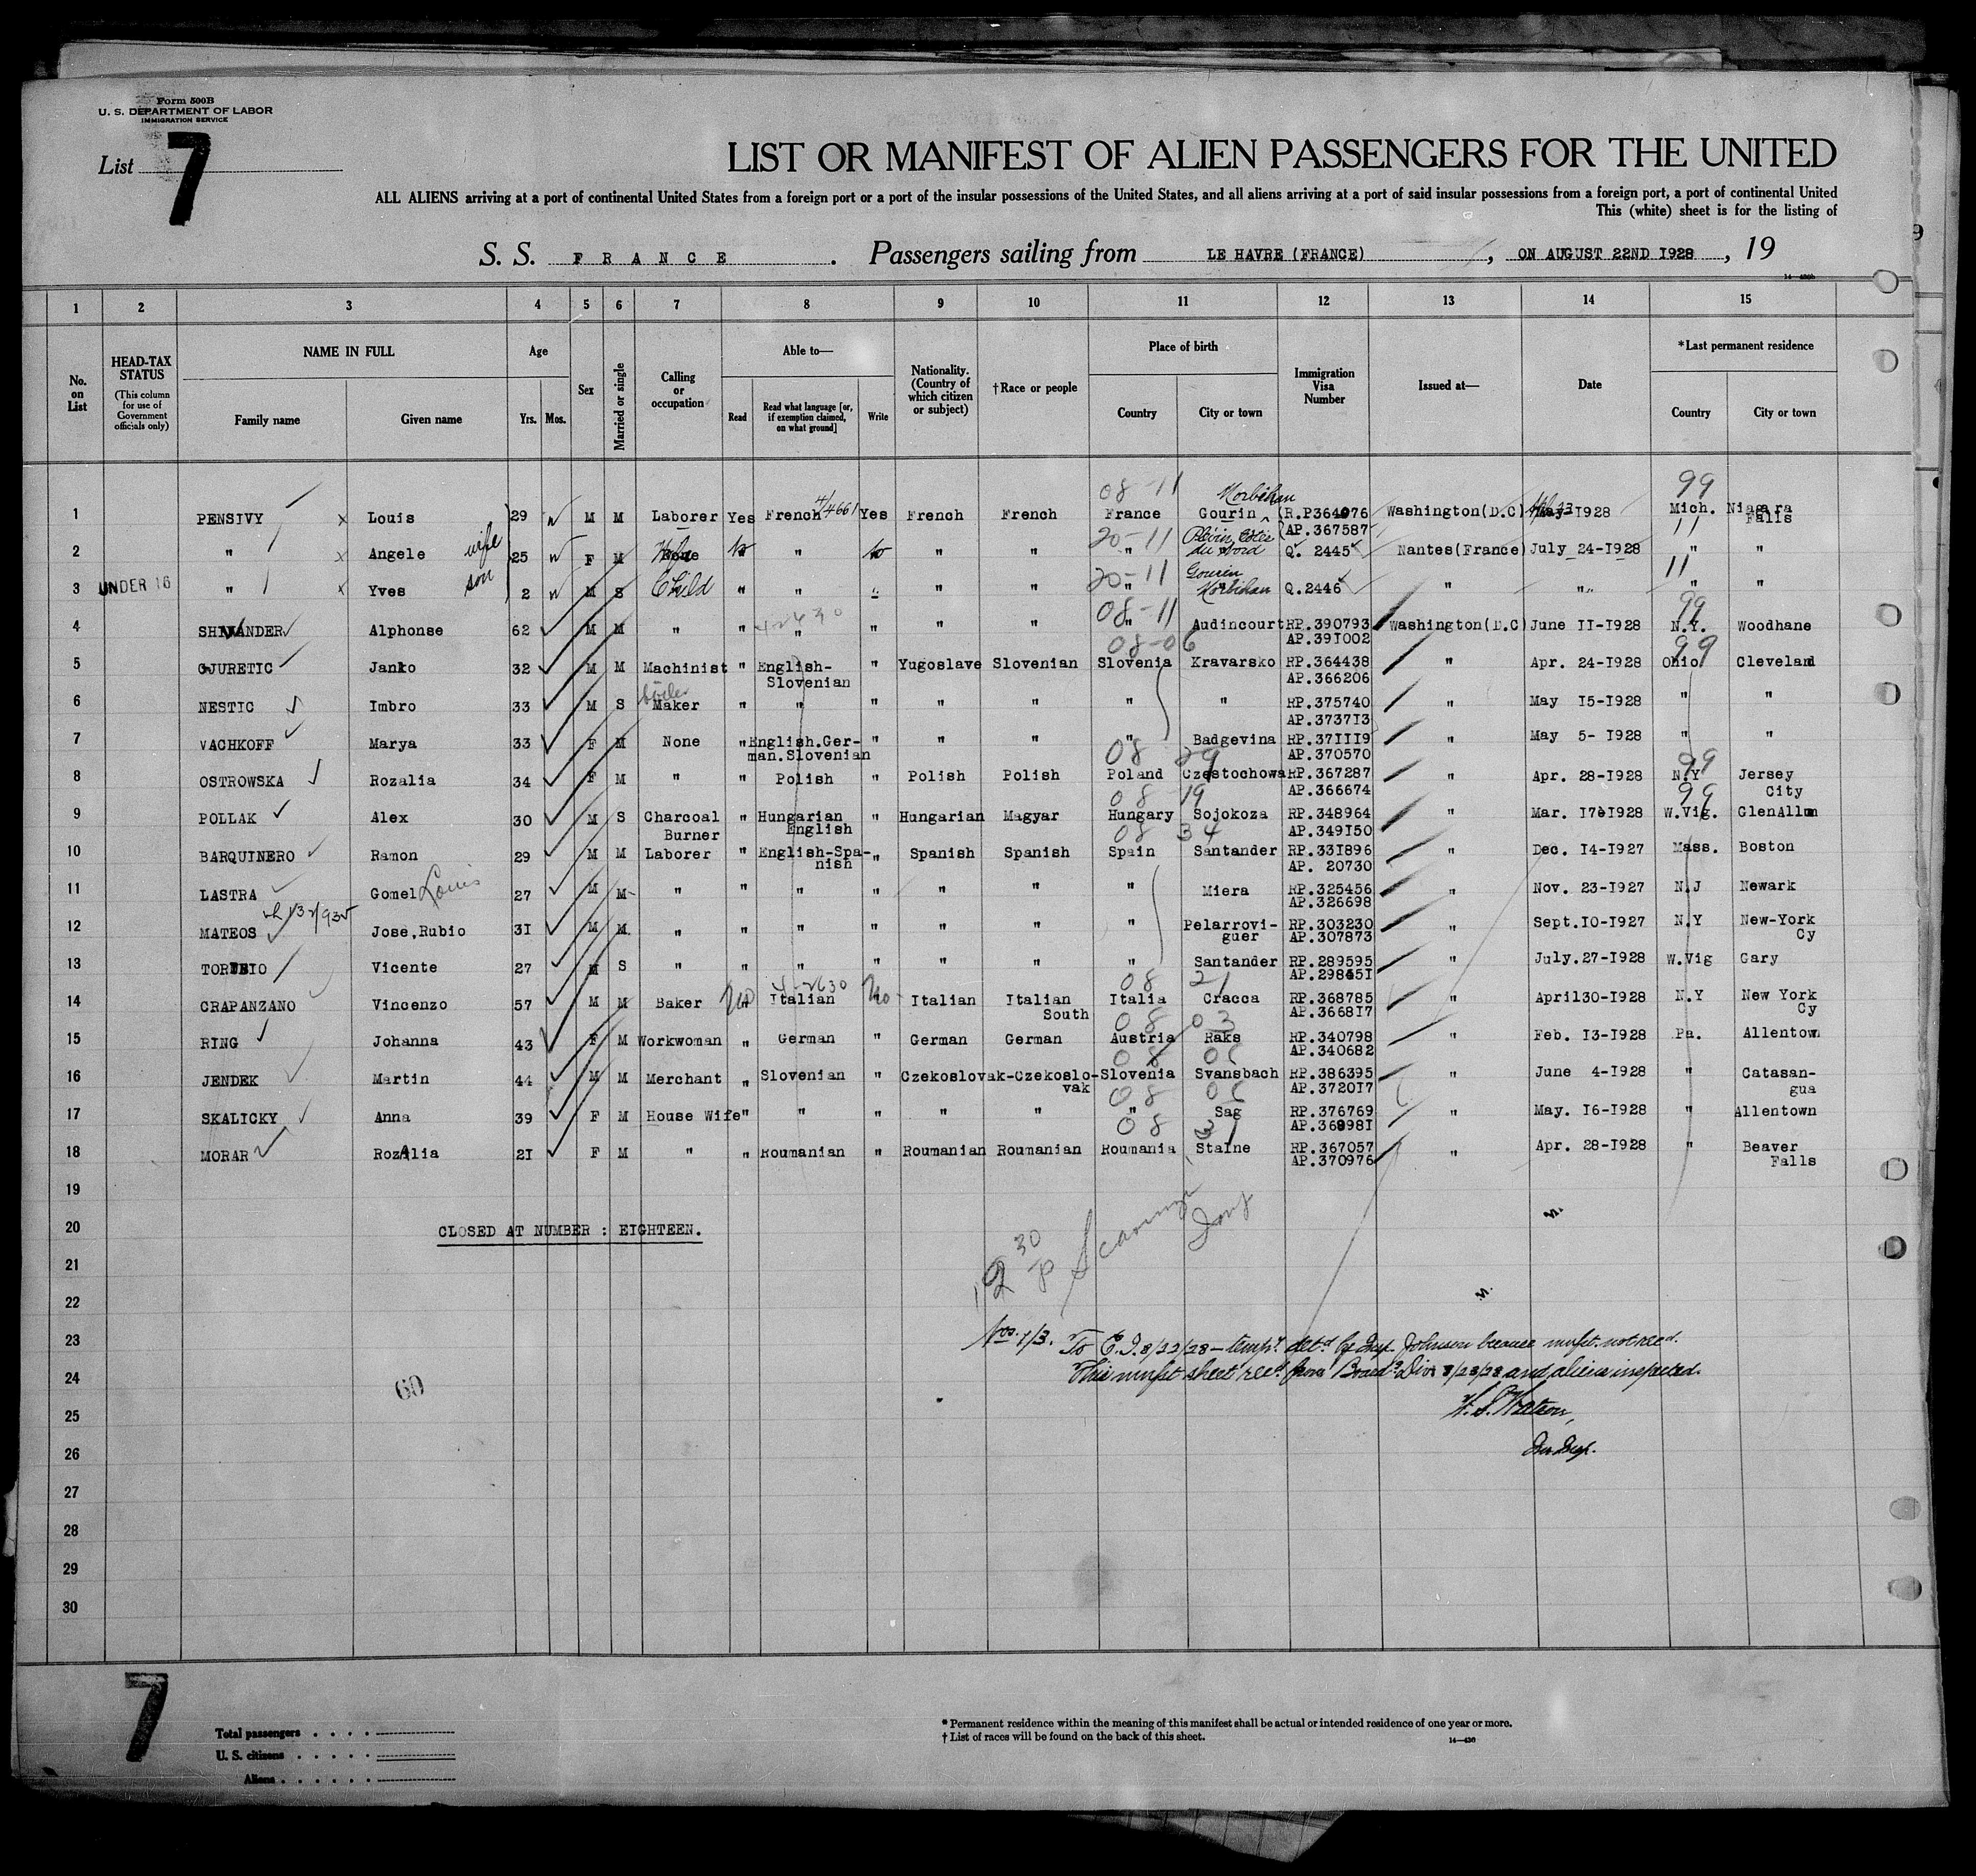 Form 500B
U. S. DEPARTMENT OF LABOR
IMMIGRATION SERVICE
List 7
LIST OR MANIFEST OF ALIEN PASSENGERS FOR THE UNITED
ALL ALIENS arriving at a port of continental United States from a foreign port or a port of the insular possessions of the United States, and all aliens arriving at a port of said insular possessions from a foreign port, a port of continental United
This (white) sheet is for the listing of
S. S. FRANCE. Passengers sailing from LE HAVRE (FRANCE), ON AUGUST 22ND I928, 19
1 2 3 4 5 6 7 8 9 10 11 12 13 14 15
No. on List
HEAD-TAX STATUS
(This column for use of Government officials only)
NAME IN FULL
Family name
Given name
Age
Yrs. Mos.
Sex
Married or single
Calling or occupation
Able to—
Read
Read what language [or, if exemption claimed, on what ground]
Write
Nationality. (Country of which citizen or subject)
†Race or people
Place of birth
Country
City or town
Immigration Visa Number
Issued at—
Date
*Last permanent residence
Country
City or town
08-11 Morbihan 99
1 PENSIVY x Louis 29 M M Laborer Yes French 4/4661 Yes French French France Gourin R.P364976 Washington(D.C) I928 Mich. Niagara Falls
AP.367587
20-11 11
2 " x Angele wife 25 F M Wife " " " " du Nord Q. 2445 Nantes(France) July 24-I928 " "
20-11 Gourin 11
3 UNDER 16 " x Yves son 2 M S Child " " " " " " Morbihan Q.2446 " " " "
08-11 99
4 Alphonse 62 M M " " 4-2630 " " " " " Audincourt RP.390793 Washington(D.C) June II-I928 N.Y. Woodhane
AP.39I002
08-06 99
5 GJURETIC Janko 32 M M Machinist " English-Slovenian " Yugoslave Slovenian Slovenia Kravarsko RP.364438 " Apr. 24-I928 Ohio Cleveland
AP.366206
6 NESTIC Imbro 33 M S boiler Maker " " " " " " " RP.375740 " May I5-I928 " "
AP.3737I3
7 VACHKOFF Marya 33 F M None " English.German.Slovenian " " " " Badgevina RP.37III9 " May 5- I928 " "
AP.370570
08 29 99
8 OSTROWSKA Rozalia 34 F M " " Polish " Polish Polish Poland Czestochowa RP.367287 " Apr. 28-I928 N.Y Jersey City
AP.366674
08 19 99
9 POLLAK Alex 30 M S Charcoal Burner " Hungarian English " Hungarian Magyar Hungary Sojokoza RP.348964 " Mar. I7 I928 W.Vig. GlenAllum
AP.349I50
08 34
10 BARQUINERO Ramon 29 M M Laborer " English-Spanish " Spanish Spanish Spain Santander RP.33I896 " Dec. I4-I927 Mass. Boston
AP. 20730
11 LASTRA Gomel Louis 27 M M " " " " " " " Miera RP.325456 " Nov. 23-I927 N.J Newark
AP.326698
12 MATEOS Jose,Rubio 3I M M " " " " " " " Pelarroviguer RP.303230 " Sept.I0-I927 N.Y New-York Cy
AP.307873
13 Vicente 27 M S " " " " " " " Santander RP.289595 " July.27-I928 W.Vig Gary
AP.298451
08 21
14 CRAPANZANO Vincenzo 57 M M Baker No 4-2630 Italian No Italian Italian South Italia Cracca RP.368785 " April30-I928 N.Y New York Cy
AP.3668I7
08 03
15 RING Johanna 43 F M Workwoman " German " German German Austria Raks RP.340798 " Feb. I3-I928 Pa. Allentown
AP.340682
08 06
16 JENDEK Martin 44 M M Merchant " Slovenian " Czekoslovak-Czekoslovak-Slovenia Svansbach RP.386395 " June 4-I928 " Catasangua
AP.3720I7
08 06
17 SKALICKY Anna 39 F M House Wife " " " " " " Sag RP.376769 " May. I6-I928 " Allentown
AP.36898I
08 31
18 MORAR Rozalia 2I F M " " Roumanian " Roumanian Roumanian Roumania Stalne RP.367057 " Apr. 28-I928 " Beaver Falls
AP.370976
19
20 CLOSED AT NUMBER : EIGHTEEN.
21
22
23 Nos. 1/3. To E.I. 8/22/28 - temp. det'd by Insp. Johnson because mnfst. not rec'd.
24 This mnfst sheet rec'd from Board'g Div. 8/28/28 and aliens inspected.
60
25 Watson,
26
27
28
29
30
7
Total passengers
U. S. citizens
Aliens
* Permanent residence within the meaning of this manifest shall be actual or intended residence of one year or more.
† List of races will be found on the back of this sheet.
14—430